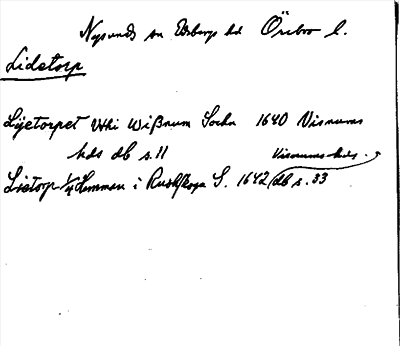 Nysunds sn Edsbergs hd Örebro l.
Lidetorp
Lijetorpet vthi Wißnum Sochn 1640 Visnums
hds db s. 11
Visnums hds.
Lietorp 1/4 Hemman i Rudskoga S. 1642 db s. 33